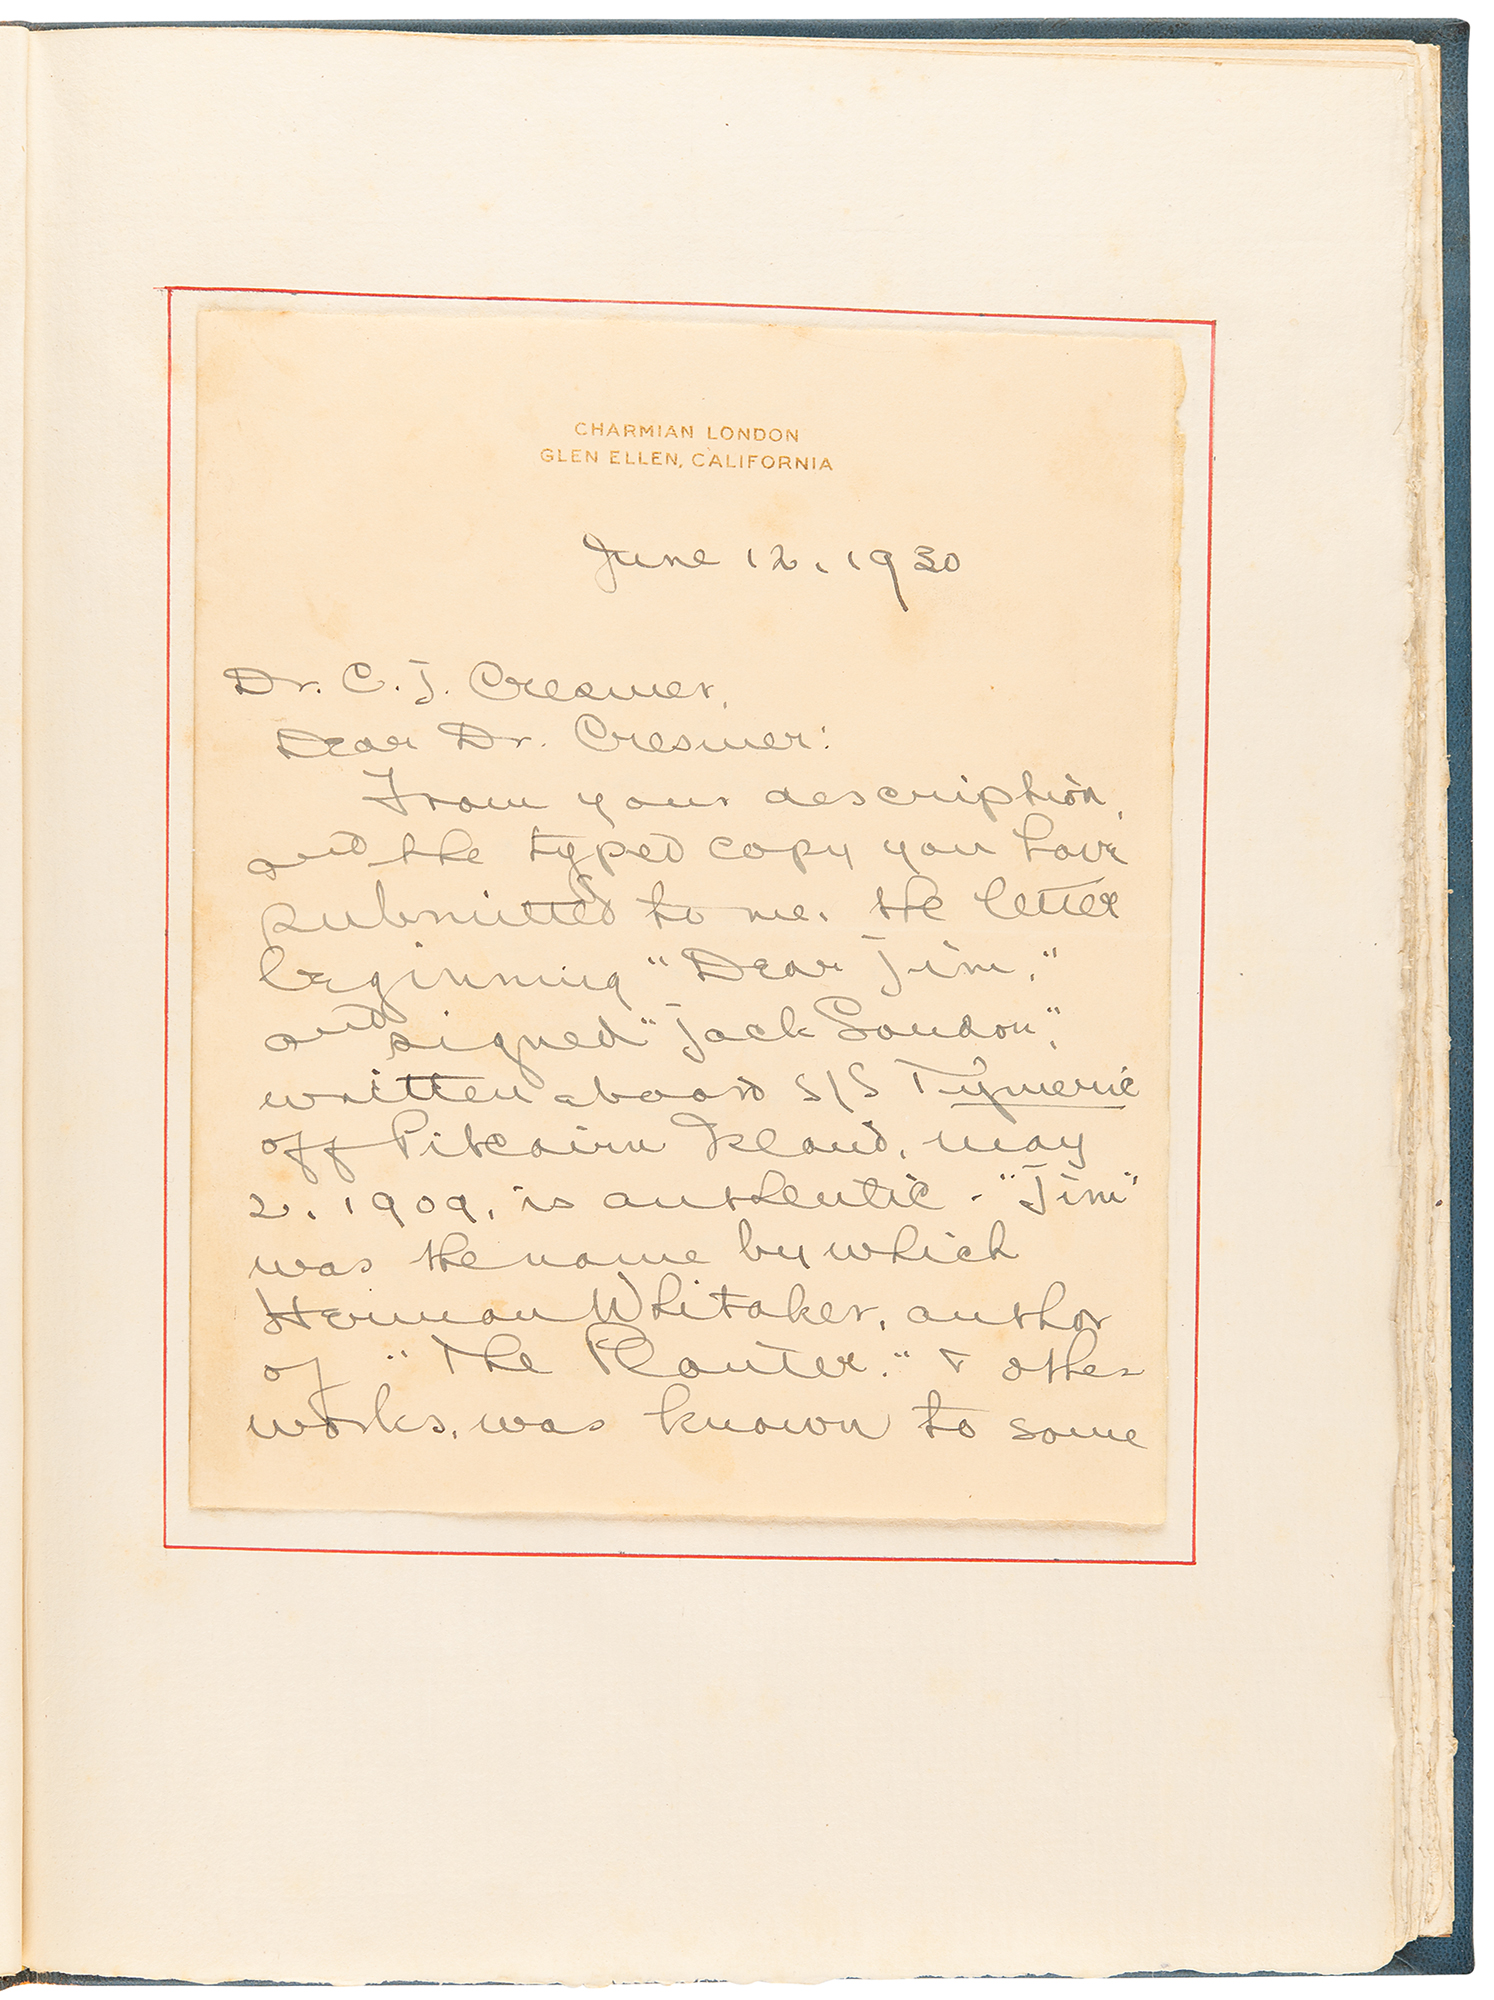 CHARMIAN LONDON
GLEN ELLEN, CALIFORNIA
June 12, 1930
Dr. C. J. Cresmer,
Dear Dr. Cresmer:
From your description,
and the typed copy you have
submitted to me, the letter
beginning "Dear Jim,"
and signed "Jack London",
written aboard S/S Tymeric
off Pitcairn Island, May
2, 1909, is authentic. "Jim"
was the name by which
Herman Whitaker, author
of "The Planter," & other
works, was known to some